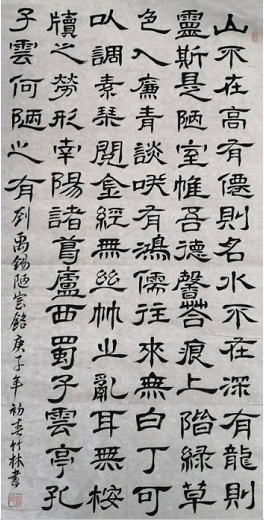 山不在高有僊則名水不在深有龍則
靈斯是陋室惟吾德馨苔痕上階綠草
色入廉青談咲有鴻儒往來無白丁可
以調素琴閱金經無絲竹之亂耳無桉
牘之勞形南陽諸葛廬西蜀子雲亭孔
子雲何陋之有劉禹錫陋室銘庚子年初春竹林書